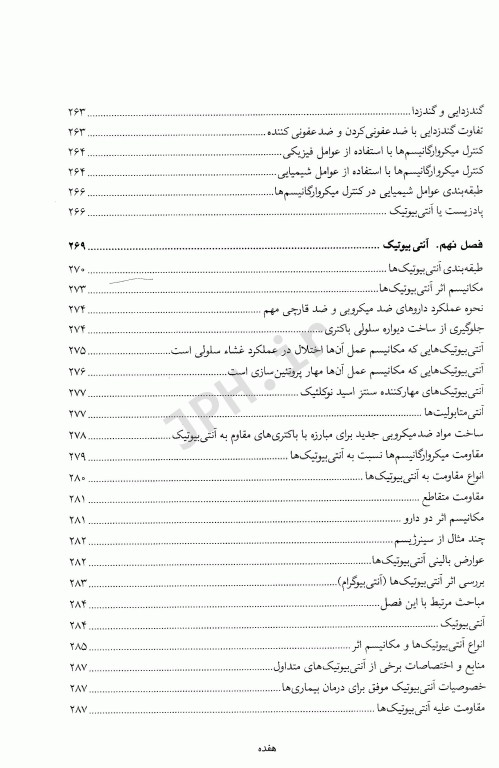 گندزدایی و گندزدا ۲۶۳
تفاوت گندزدایی با ضدعفونی‌کردن و ضدعفونی کننده ۲۶۳
کنترل میکروارگانیسم‌ها با استفاده از عوامل فیزیکی ۲۶۴
کنترل میکروارگانیسم‌ها با استفاده از عوامل شیمیایی ۲۶۴
طبقه‌بندی عوامل شیمیایی در کنترل میکروارگانیسم‌ها ۲۶۶
پادزیست یا آنتی‌بیوتیک ۲۶۶
فصل نهم. آنتی‌بیوتیک ۲۶۹
طبقه‌بندی آنتی‌بیوتیک‌ها ۲۷۰
مکانیسم اثر آنتی‌بیوتیک‌ها ۲۷۳
نحوه عملکرد داروهای ضد میکروبی و ضد قارچی مهم ۲۷۴
جلوگیری از ساخت دیواره سلولی باکتری ۲۷۴
آنتی‌بیوتیک‌هایی که مکانیسم عمل آن‌ها اختلال در عملکرد غشاء سلولی است ۲۷۵
آنتی‌بیوتیک‌هایی که مکانیسم عمل آن‌ها مهار پروتئین‌سازی است ۲۷۶
آنتی‌بیوتیک‌های مهارکننده سنتز اسید نوکلئیک ۲۷۷
آنتی‌متابولیت‌ها ۲۷۷
ساخت مواد ضدمیکروبی جدید برای مبارزه با باکتری‌های مقاوم به آنتی‌بیوتیک ۲۷۸
مقاومت میکروارگانیسم‌ها نسبت به آنتی‌بیوتیک‌ها ۲۷۹
انواع مقاومت به آنتی‌بیوتیک‌ها ۲۸۰
مقاومت متقاطع ۲۸۱
مکانیسم اثر دو دارو ۲۸۱
چند مثال از سینرژیسم ۲۸۲
عوارض بالینی آنتی‌بیوتیک‌ها ۲۸۲
بررسی اثر آنتی‌بیوتیک‌ها (آنتی‌بیوگرام) ۲۸۳
مباحث مرتبط با این فصل ۲۸۴
آنتی‌بیوتیک ۲۸۴
انواع آنتی‌بیوتیک‌ها و مکانیسم اثر ۲۸۵
منابع و اختصاصات برخی از آنتی‌بیوتیک‌های متداول ۲۸۷
خصوصیات آنتی‌بیوتیک موفق برای درمان بیماری‌ها ۲۸۷
مقاومت علیه آنتی‌بیوتیک‌ها ۲۸۷
هفده
JPH.ir